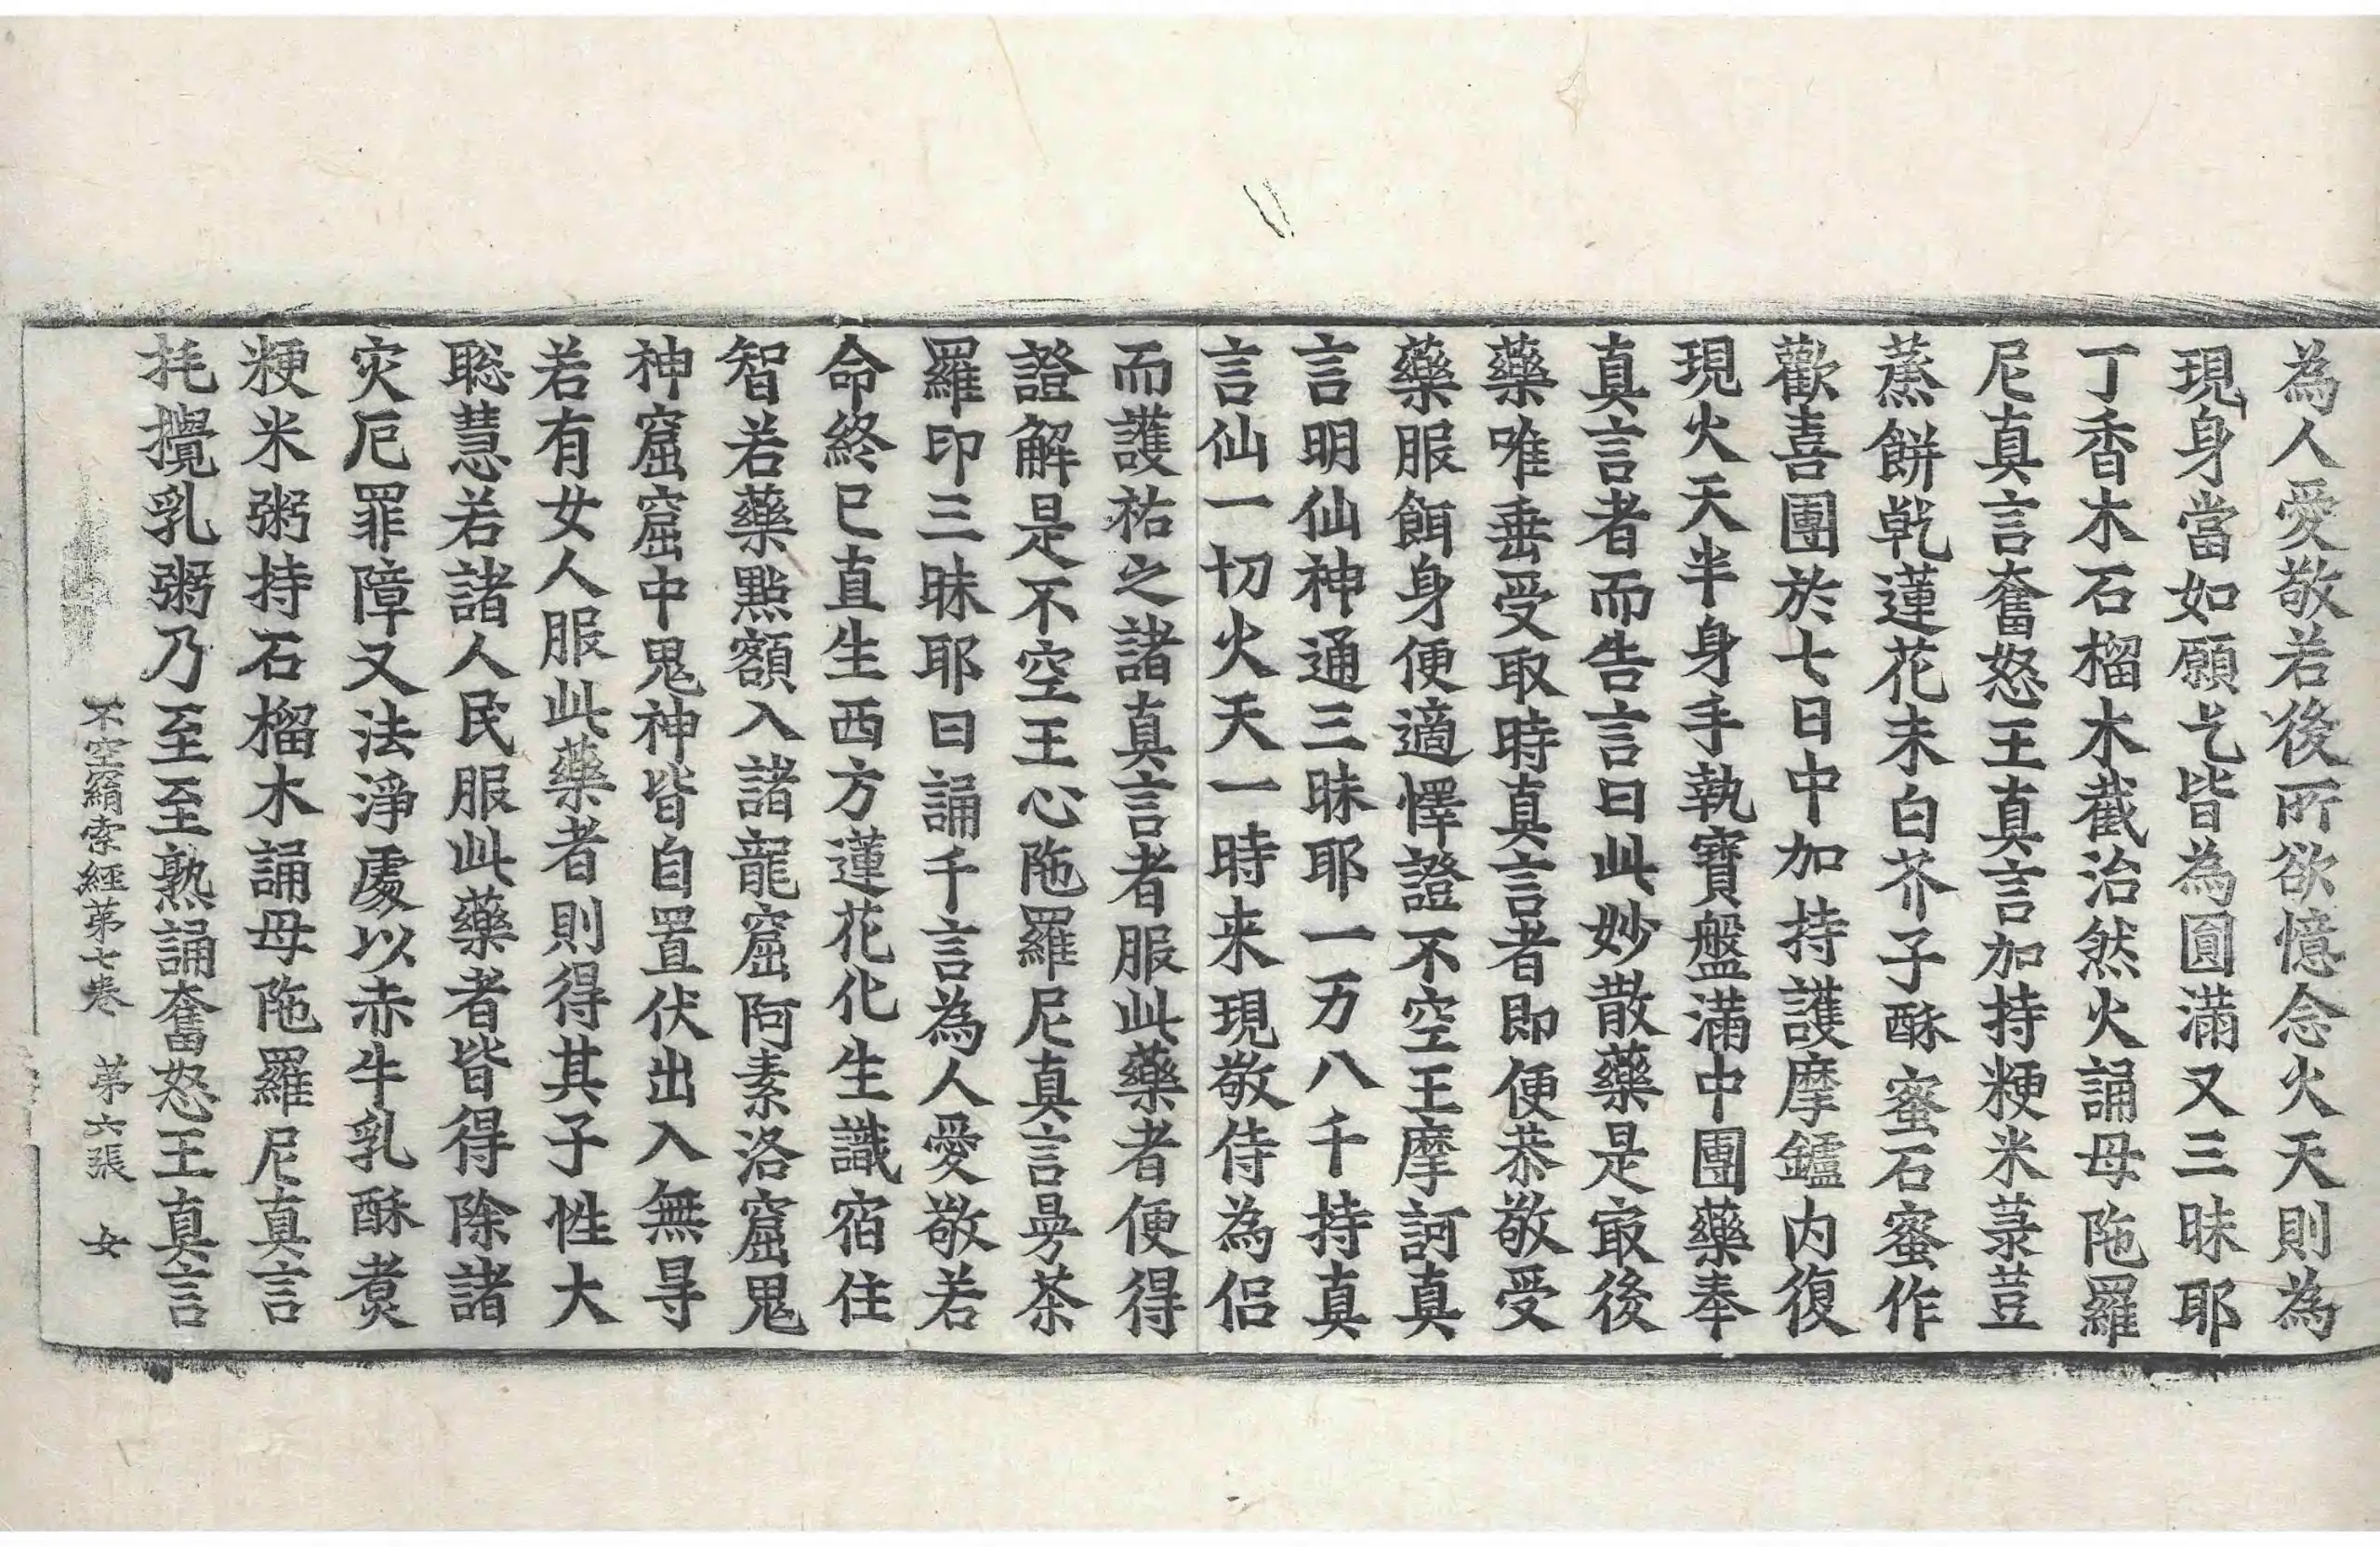 為人愛敬若後所欲憶念火天則為
現身當如願乞皆為圓滿又三昧耶
丁香木石榴木截治然火誦母陁羅
尼真言奮怒王真言加持粳米菉荳
蒸餅乾蓮花末白芥子酥蜜石蜜作
歡喜團於七日中加持護摩鑪内復
現火天半身手執寶盤滿中團藥奉
真言者而告言曰此妙散藥是㝡後
藥唯垂受取時真言者即便恭敬受
藥服餌身便適懌證不空王摩訶真
言明仙神通三昧耶一万八千持真
言仙一切火天一時来現敬侍為侣
而護祐之諸真言者服此藥者便得
證解是不空王心陁羅尼真言曼荼
羅印三昧耶曰誦千言為人愛敬若
命終已直生西方蓮花化生識宿住
智若藥點額入諸龍窟阿素洛窟鬼
神窟窟中鬼神皆自置伏出入無㝵
若有女人服此藥者則得其子性大
聡慧若諸人民服此藥者皆得除諸
灾厄罪障又法淨處以赤牛乳酥煑
粳米粥持石榴木誦母陁羅尼真言
𢬵攪乳粥乃至至熟誦奮怒王真言
不空羂索經苐七卷 苐六張 女